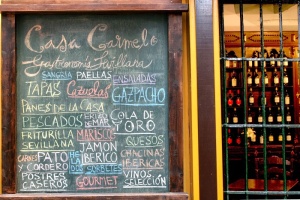 Casa Carmelo
Gastronomía Sevillana
SANGRÍA PAELLAS ENSALADAS
TAPAS Cazuelas GAZPACHO
PANES DE LA CASA
PESCADOS ERIZO DE MAR COLA DE TORO
FRITURILLA SEVILLANA MARISCOS QUESOS
JAMON IBERICO CHACINAS IBERICAS
CARNES PATO Y CORDERO
HELADOS SORBETES
POSTRES CASEROS GOURMET VINOS SELECCIÓN